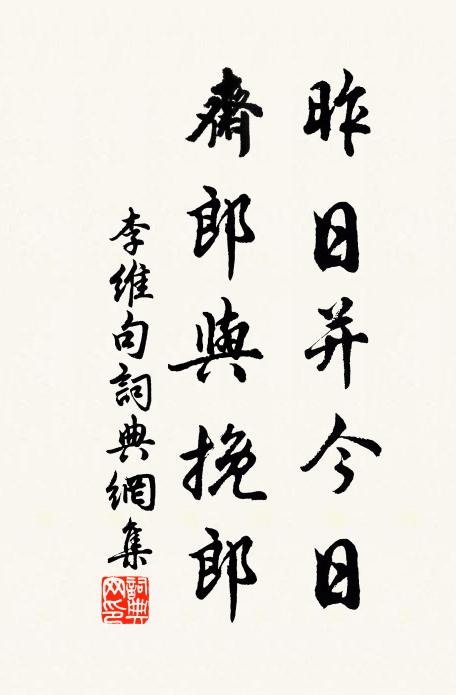 昨日并今日
齋郎與挽郎
李維句詞典網集
詞典网印